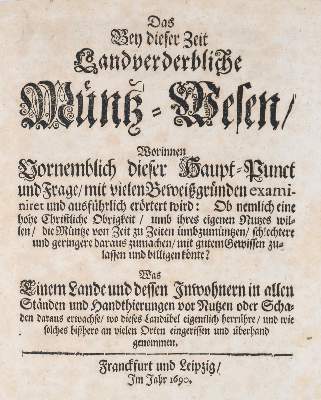 Das
Bey dieser Zeit
Landverderbliche
Müntz-Wesen/
Worinnen
Vornemblich dieser Haupt-Punct
und Frage/ mit vielen Beweißgründen exami-
niret und ausführlich erörtert wird: Ob nemlich eine
hohe Christliche Obrigkeit/ umb ihres eigenen Nutzes wil-
len/ die Müntze von Zeit zu Zeiten umbzumüntzen/ schlechtere
und geringere daraus zumachen/ mit gutem Gewissen zu-
lassen und billigen könte?
Was
Einem Lande und dessen Inwohnern in allen
Ständen und Handthierungen vor Nutzen oder Scha-
den daraus erwachse/ wo dieses Landübel eigentlich herrühre/ und wie
solches bißhero an vielen Orten eingerissen und überhand
genommen.
Franckfurt und Leipzig/
Im Jahr 1690.